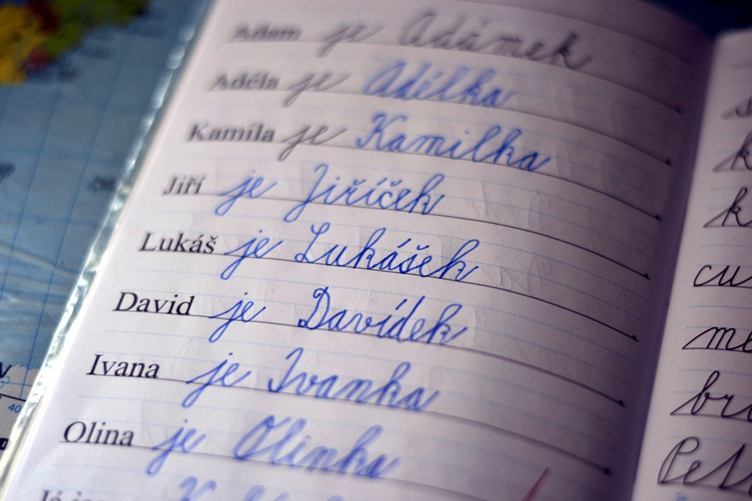 Adam je Adámek
Adéla je Adélka
Kamila je Kamilka
Jiří je Jiříček
Lukáš je Lukášek
David je Davídek
Ivana je Ivanka
Olina je Olinka
k
k
cu
me
br
Pet
40